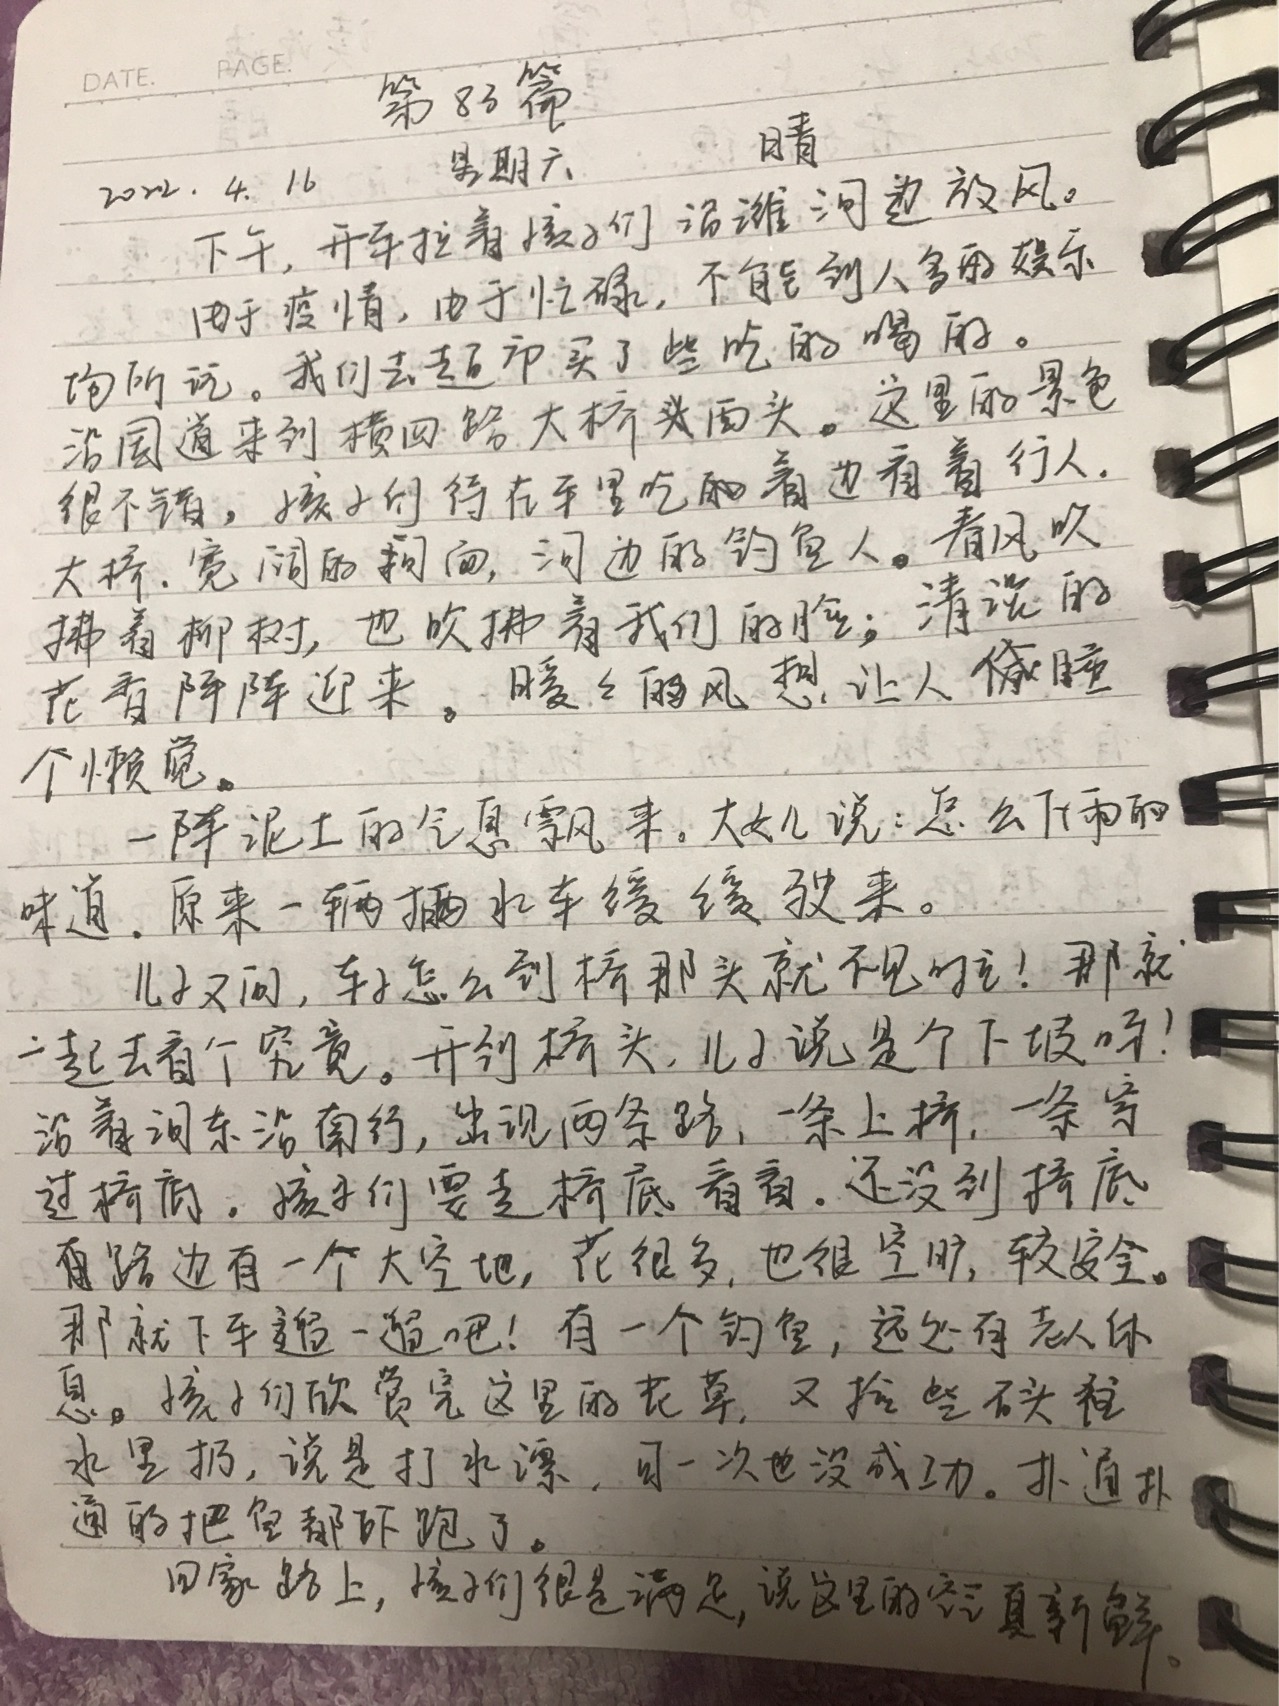 DATE. PAGE.
第83篇
2022.4.16 星期六 晴
下午,开车拉着孩子们沿潍河边放风。
由于疫情,由于忙碌,不能到人多的娱乐
场所玩。我们去超市买了些吃的喝的。
沿国道来到横四路大桥头西头。这里的景色
很不错,孩子们待在车里吃的着边看着行人.
大桥.宽阔的河面,河边的钓鱼人。春风吹
拂着柳树,也吹拂着我们的脸;清淡的
花香阵阵迎来。暖々的风想让人睡
个懒觉。
一阵泥土的气息飘来。大女儿说:怎么下雨的
味道.原来一辆洒水车缓缓驶来。
儿子又问,车子怎么到桥那头就不见啦!那就
一起去看个究竟。开到桥头,儿子说是个下坡呀!
沿着河东沿南行,出现两条路,一条上桥,一条穿
过桥底。孩子们要走桥底看看。还没到桥底
有路边有一个大空地,花很多,也很空旷,较安全。
那就下车遛一遛吧!有一个钓鱼,远处有老人休
息。孩子们欣赏完这里的花草,又捡些石头往
水里扔,说是打水漂,可一次也没成功。扑通扑
通的把鱼都吓跑了。
回家路上,孩子们很是满足,说这里的空气真新鲜。